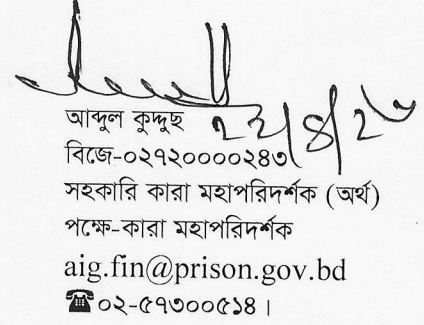 আব্দুল কুদ্দুছ
বিজে-০২৭২০০০০২৪৩
সহকারি কারা মহাপরিদর্শক (অর্থ)
পক্ষে-কারা মহাপরিদর্শক
aig.fin@prison.gov.bd
☎০২-৫৭৩০০৫১৪।